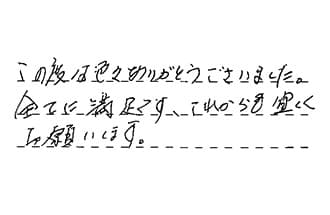 この度は色々ありがとうございました。
全てに満足です、これからも宜しく
お願いします。